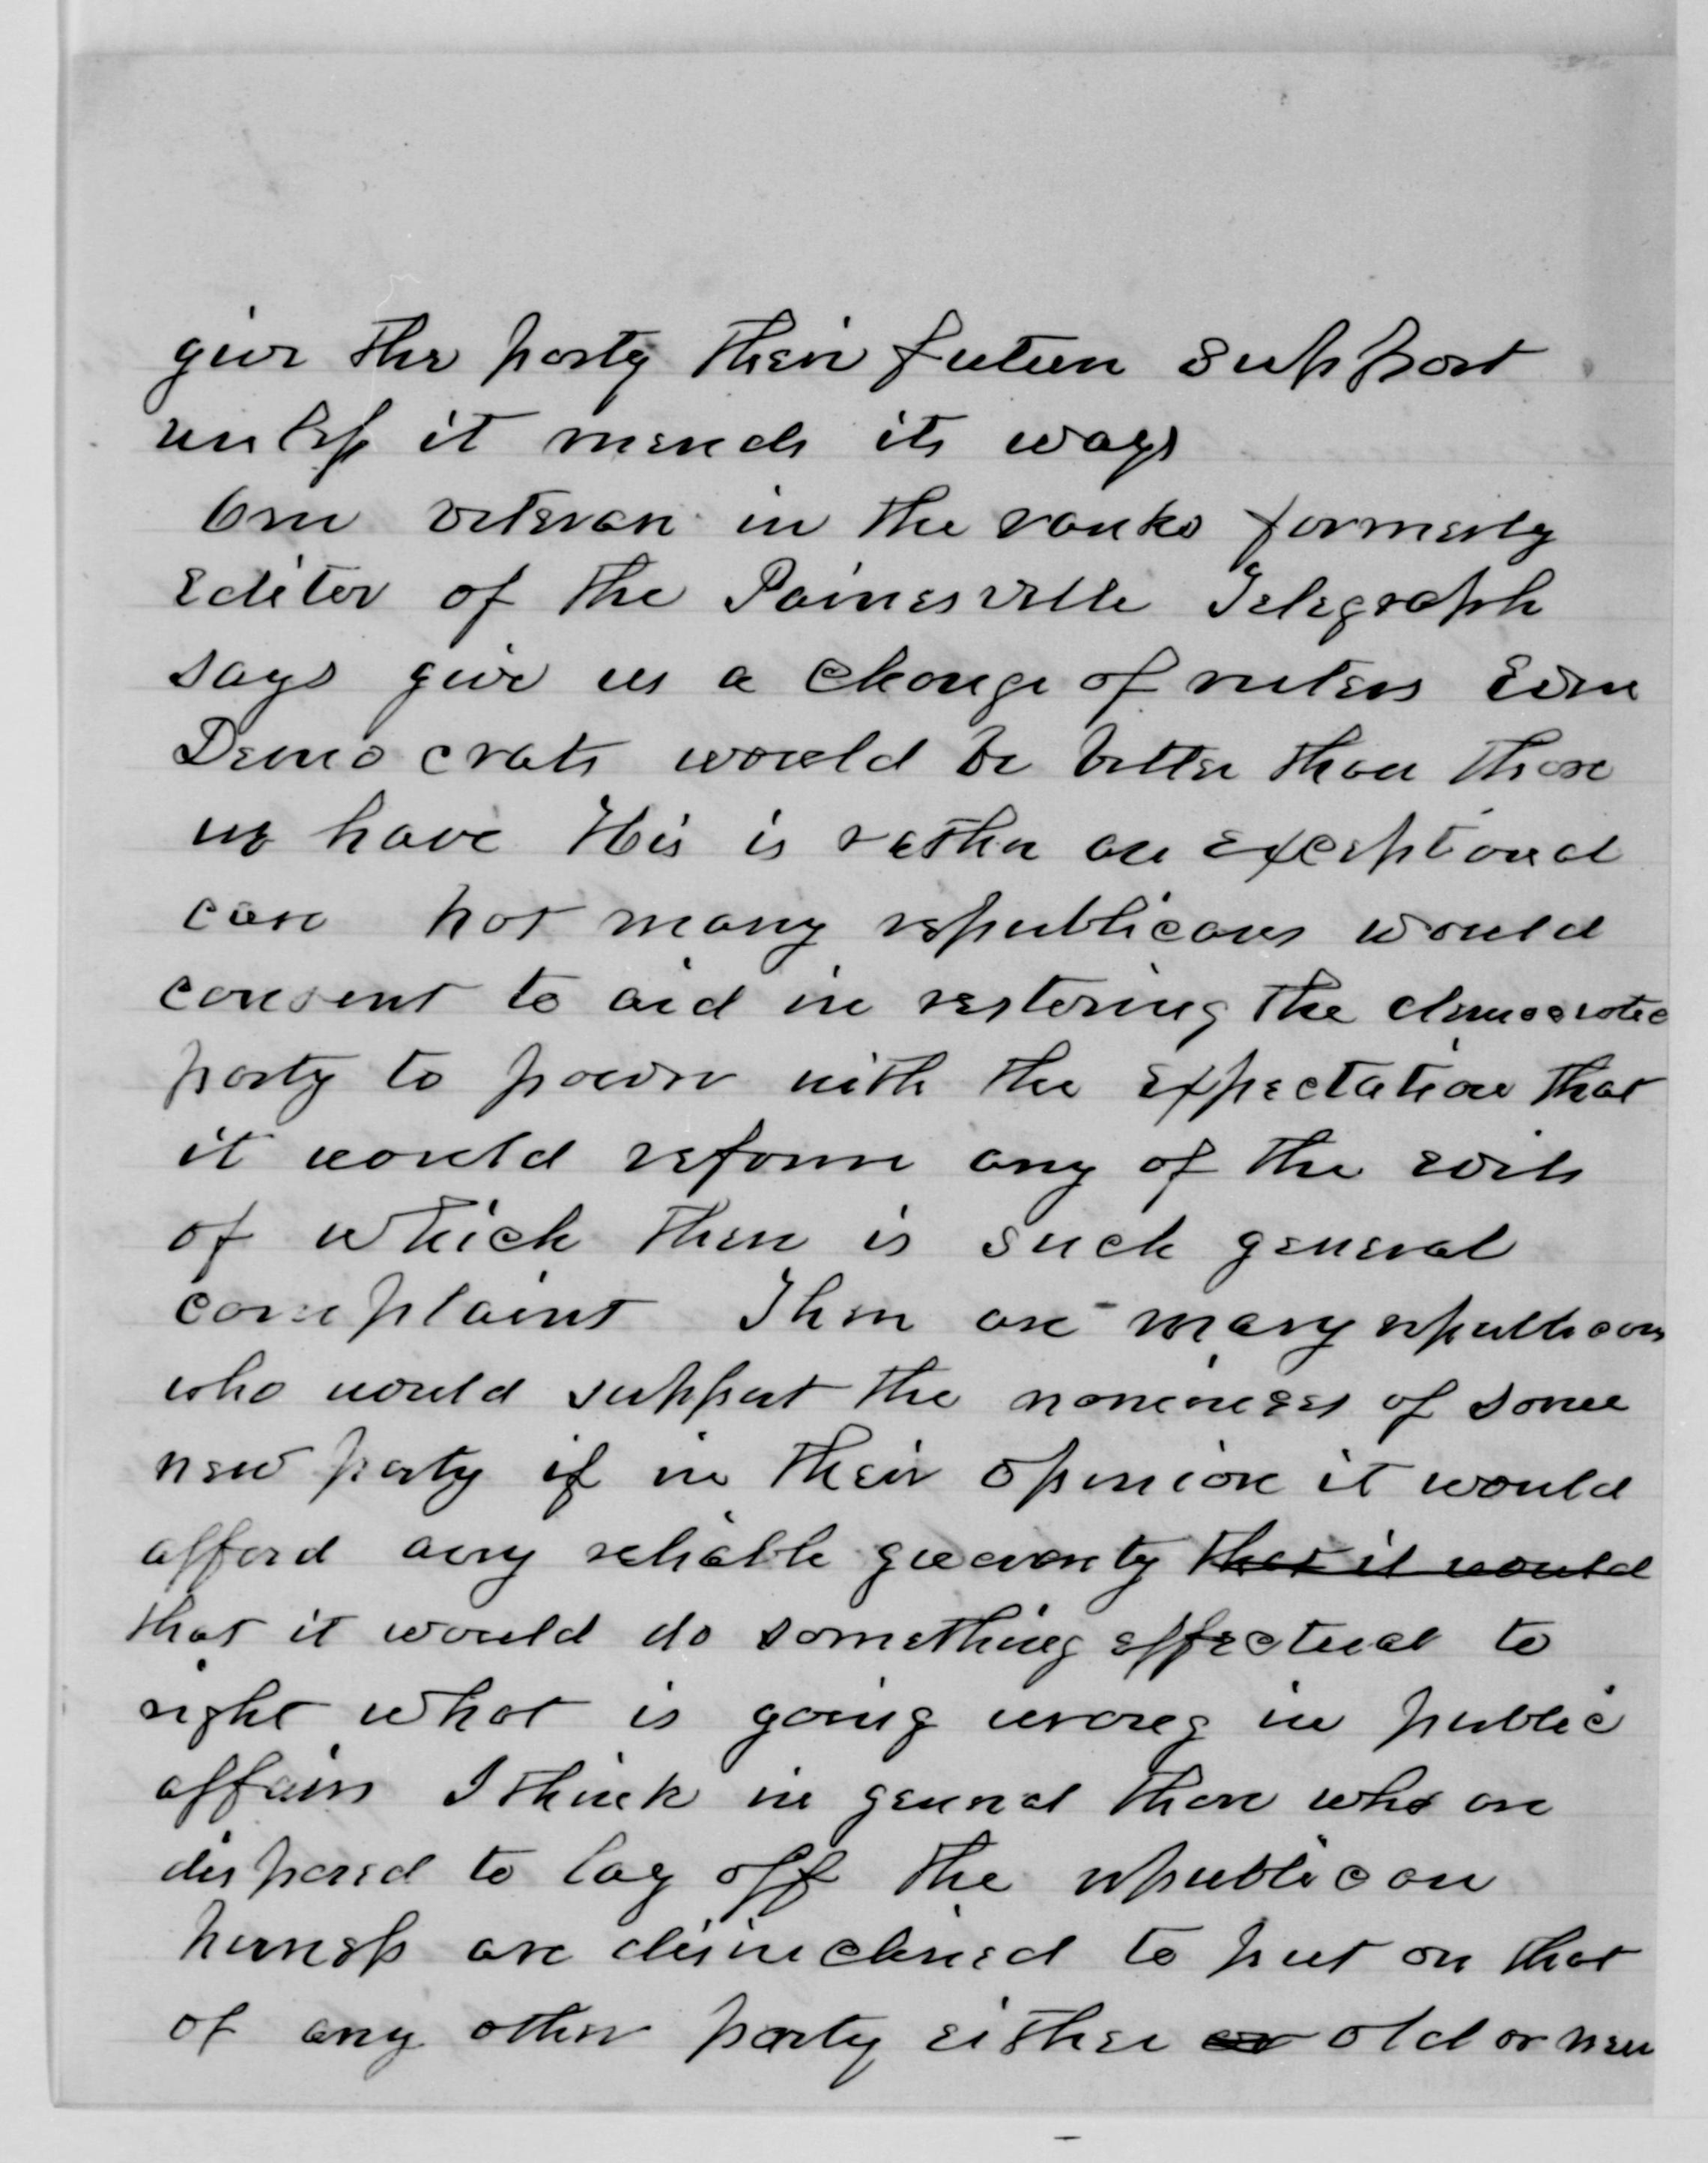 give the party their future support
unless it mends its ways
One veteran in the ranks formerly
editor of the Painesville Telegraph
says give us a change of rulers Even
Democrats would be better than those
we have This is rather an exceptional
case not many republicans would
consent to aid in restoring the democratic
party to power with the expectation that
it would reform any of the evils
of which there is such general
complaint There are many republicans
who would support the nominees of some
new party if in their opinion it would
afford any reliable guaranty that it would
that it would do something effectual to
right what is going wrong in public
affairs I think in general those who are
disposed to lay off the republican
harness are disinclined to put on that
of any other party either or old or new